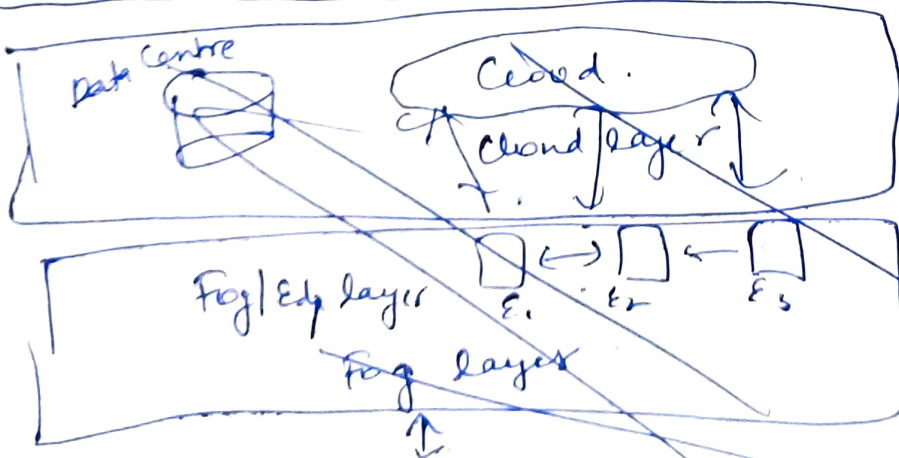 Data Centre
Cloud.
Cloud layer
Fog/Edg layer
E1 E2 E3
Fog layer